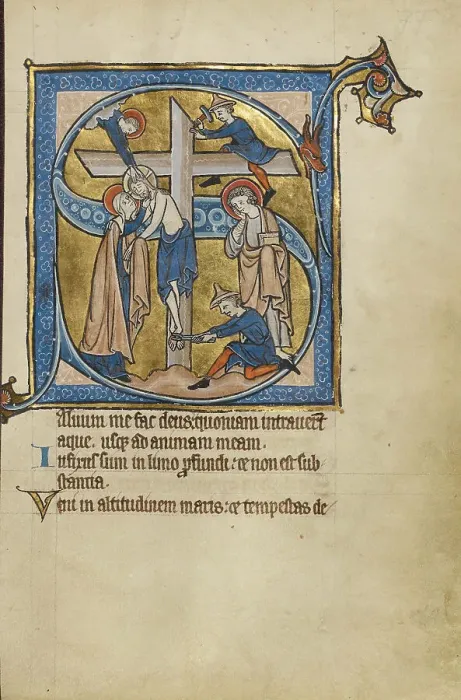 Aluum me fac deus: quoniam intrauert
aque. usq; ad animam meam.
Infixus sum in limo pfundi: ⁊ non est sub
stantia.
Veni in altitudinem maris: ⁊ tempestas de